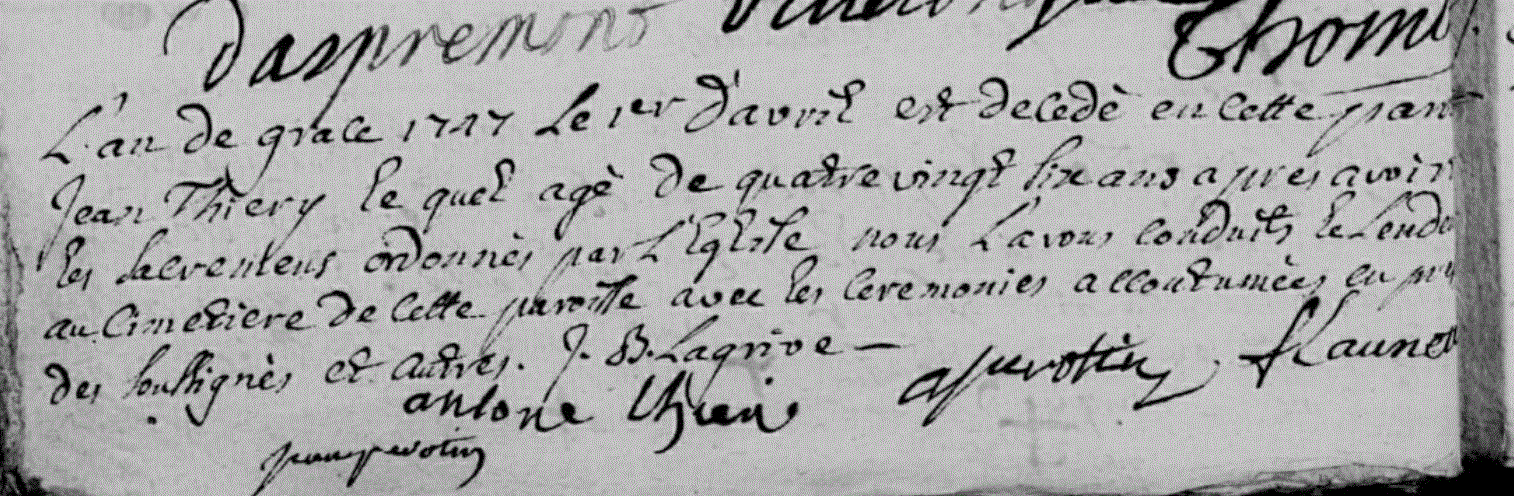 Daspremont Thom
L'an de grace 1747 Le 1er d'avril est decedè en cette par
Jean Thiery le quel agè de quatre vingt six ans apres avoir
les sacremens ordonnès par L'Eglise nous L'avons conduits le Lende
au Cimetiere de cette paroisse avec les ceremonies accoutumèes en pr
des soussignès et autres. J. B. Lagrive aperotin
antone thieri
perotin